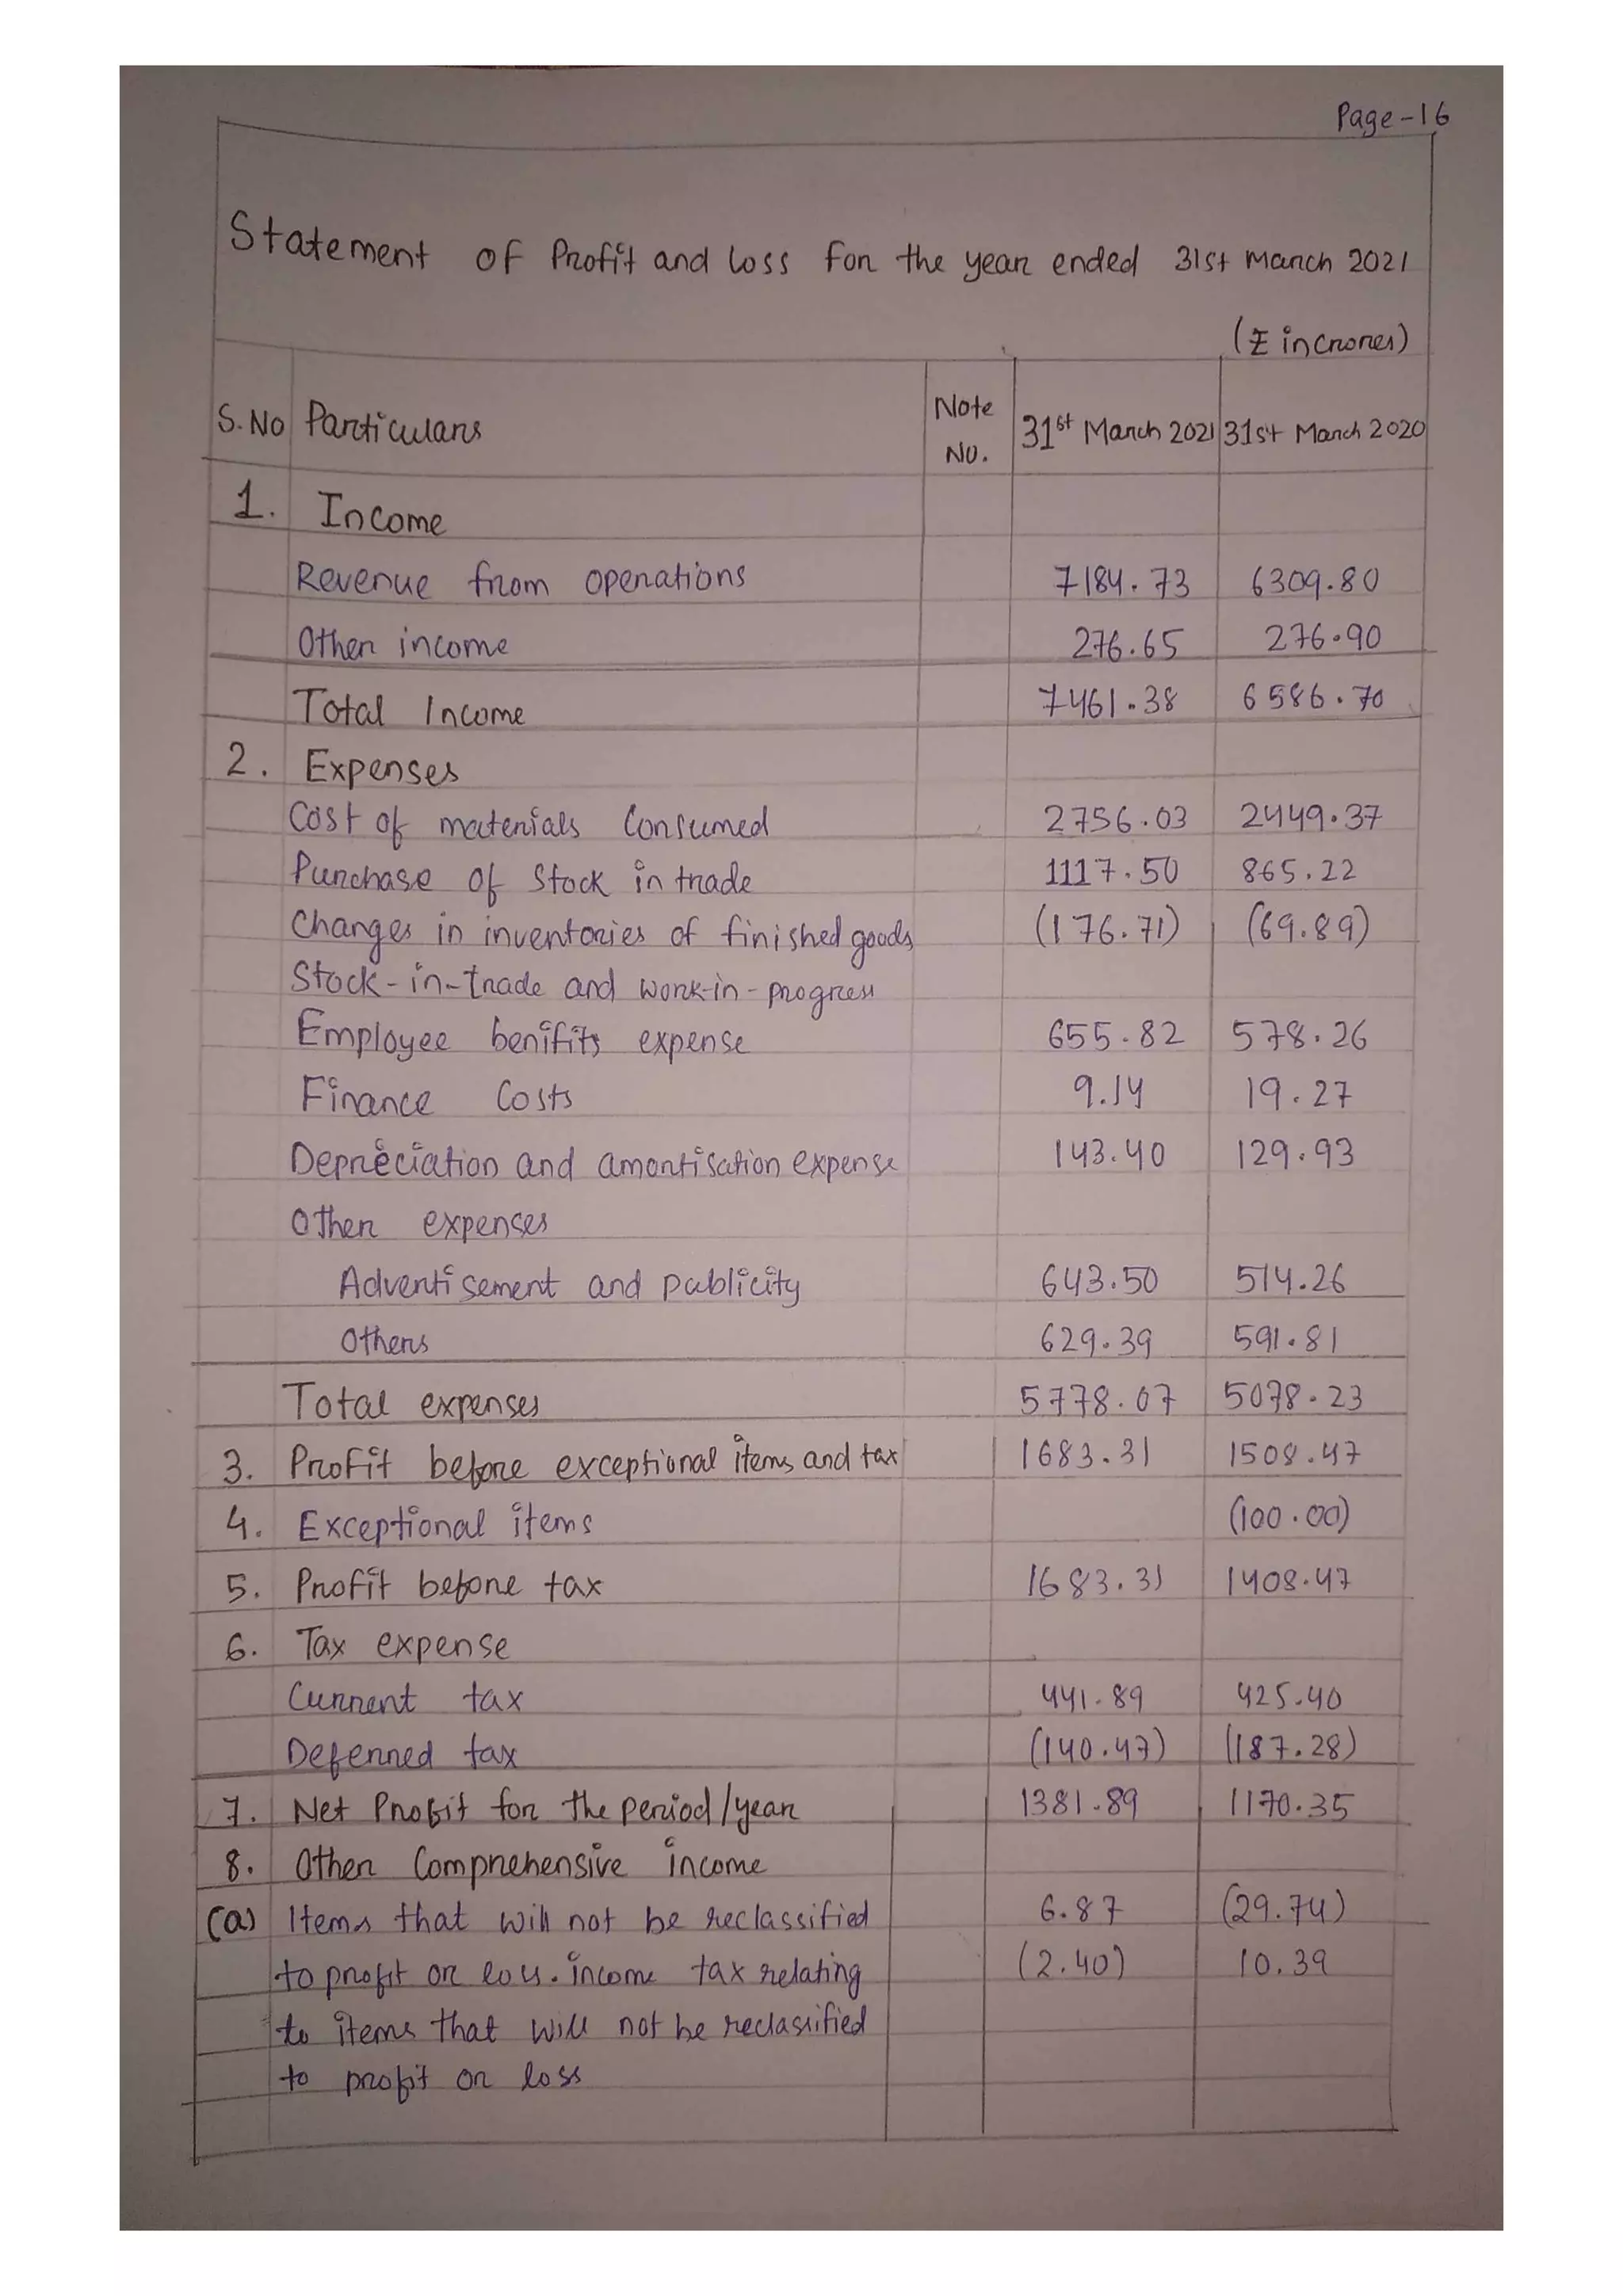 Page-16
Statement of Profit and loss for the year ended 31st March 2021
(₹ in crores)
S.No Particulars Note No. 31st March 2021 31st March 2020
1. Income
Revenue from operations 7184.73 6309.80
Other income 276.65 276.90
Total Income 7461.38 6586.70
2. Expenses
Cost of materials Consumed 2756.03 2449.37
Purchase of Stock in trade 1117.50 865.22
Changes in inventories of finished goods (176.71) (69.89)
Stock-in-trade and work-in-progress
Employee benifits expense 655.82 578.26
Finance Costs 9.14 19.27
Depreciation and amortisation expense 143.40 129.93
Other expenses
Advertisement and publicity 643.50 514.26
Others 629.39 591.81
Total expenses 5778.07 5078.23
3. Profit before exceptional items and tax 1683.31 1508.47
4. Exceptional items (100.00)
5. Profit before tax 1683.31 1408.47
6. Tax expense
Current tax 441.89 425.40
Deferred tax (140.47) (187.28)
7. Net Profit for the period/year 1381.89 1170.35
8. Other Comprehensive income
(a) Items that will not be reclassified 6.87 (29.74)
to profit or loss. income tax relating (2.40) 10.39
to items that will not be reclassified
to profit or loss